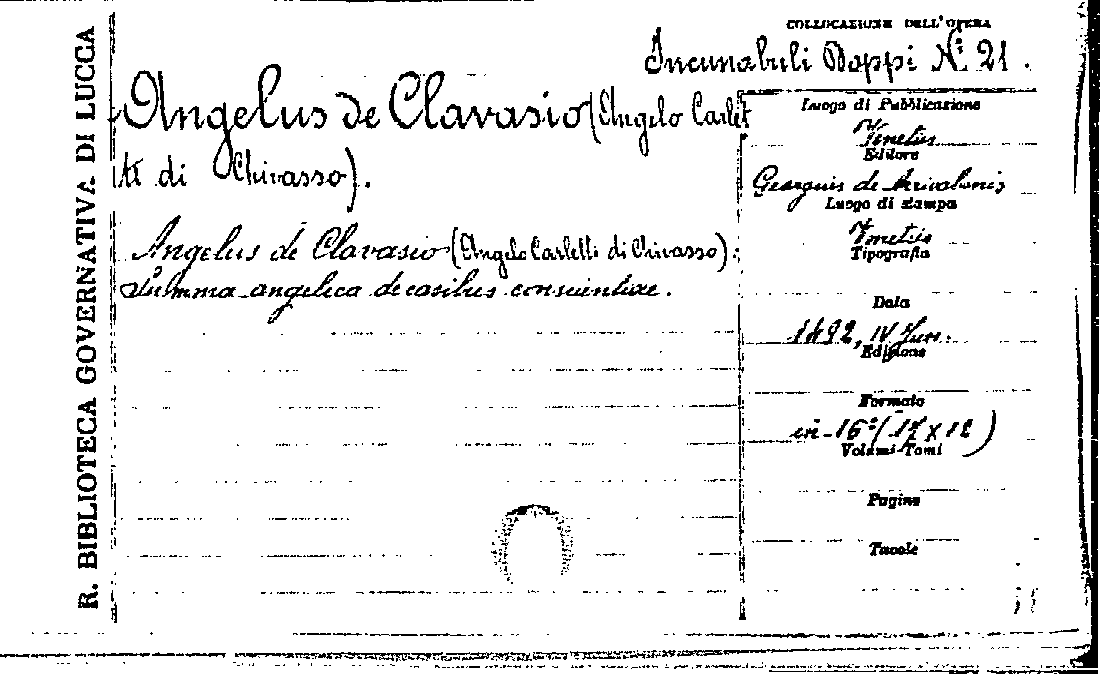 R. BIBLIOTECA GOVERNATIVA DI LUCCA
COLLOCAZIONE DELL'OPERA
Incunabuli Doppi N.: 21.
Angelus de Clavasio (Angelo Carlet
ti di Chivasso).
Angelus de Clavasio (Angelo Carletti di Chivasso).
Summa angelica de casibus conscientiae.
Luogo di Pubblicazione
Venetiis
Editore
Georguis de Arivabenis
Luogo di stampa
Venetiis
Tipografia
Data
1492, IV Jun.
Edizione
Formato
in-16° (17 x 12)
Volumi-Tomi
Pagine
Tavole